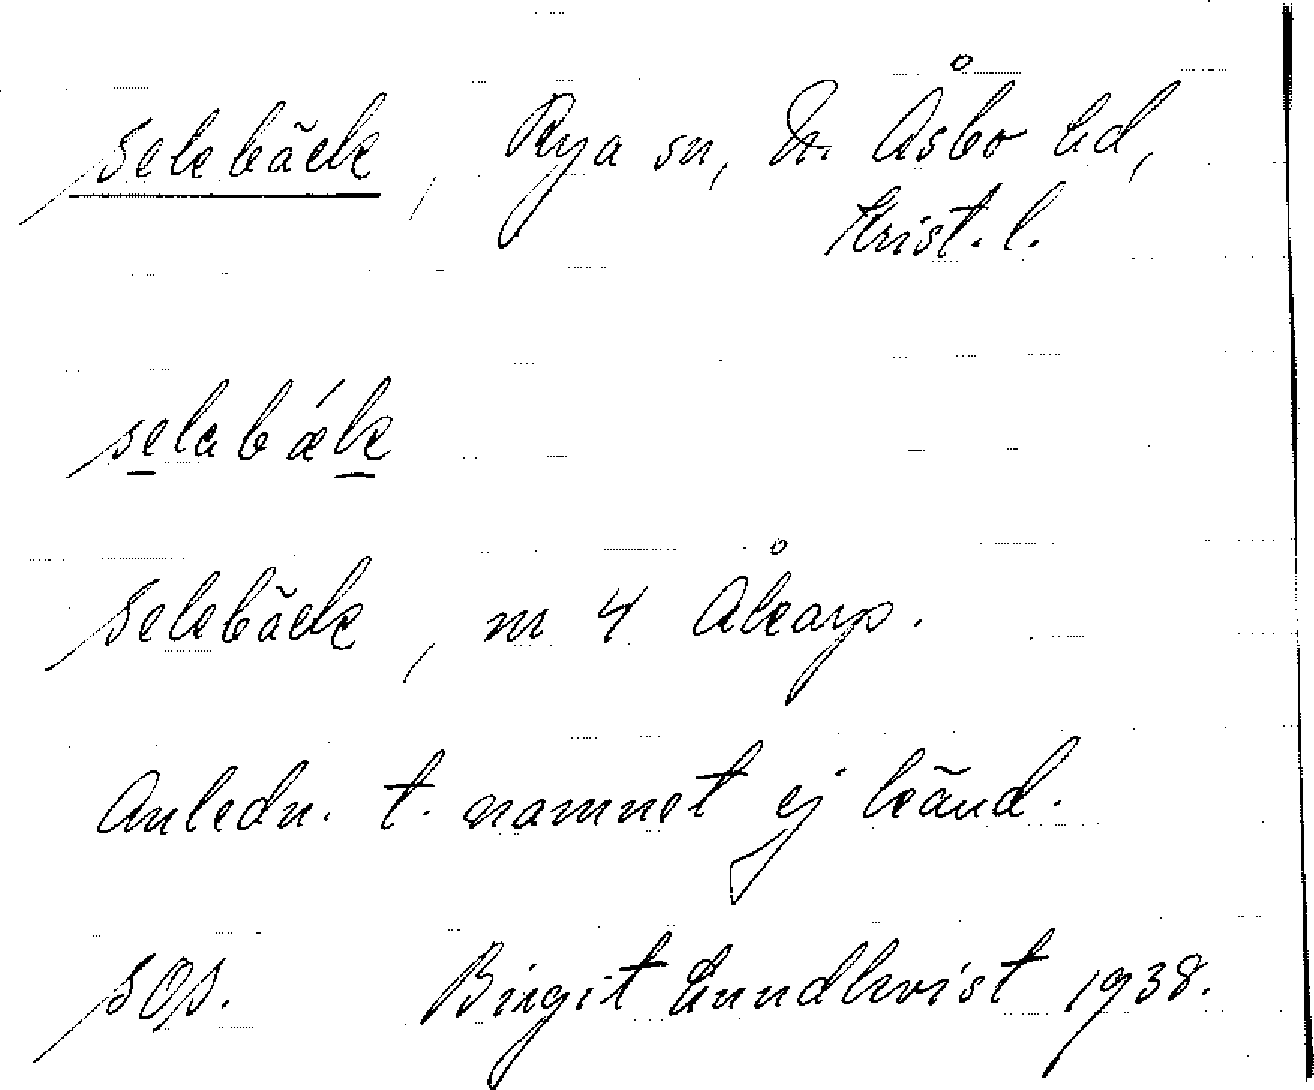 Selebäck, Rya sn, N. Åsbo hd,
Krist. l.
selabǽk
Selebäck, nr 4 Åkarp.
Anledn. t. namnet ej känd.
SOS. Birgit Lundkvist 1938.